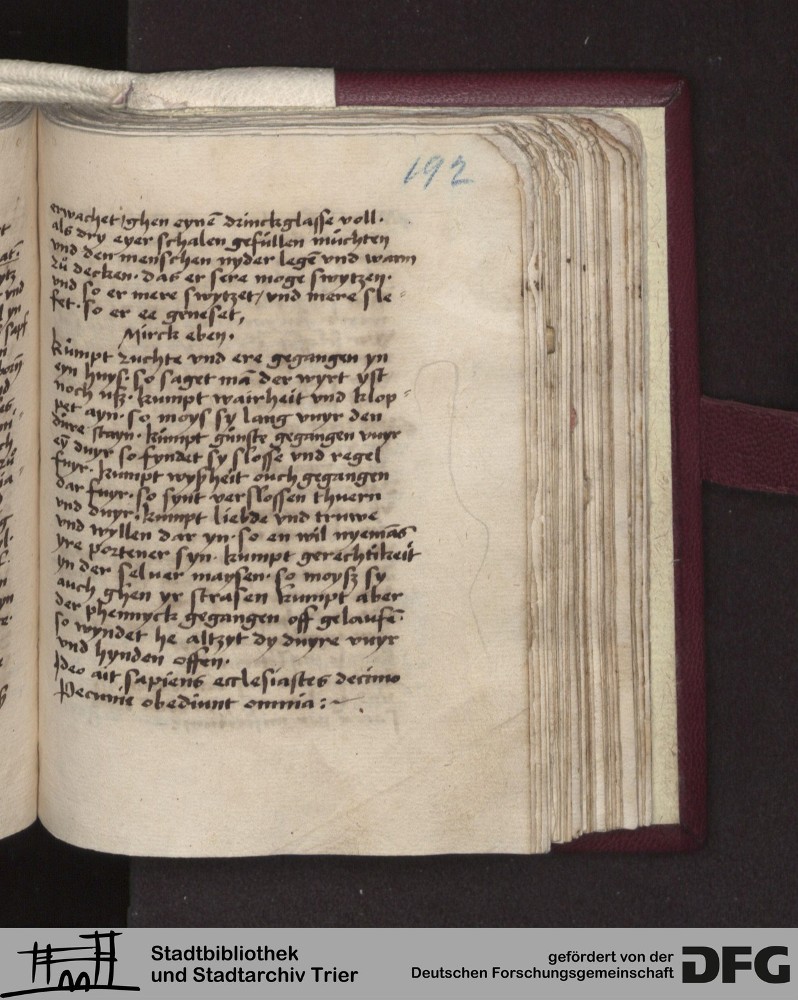 192
erwachet/ ghen eynē drinckglasse voll·
als dry eyer schalen gefüllen müchten
vnd den menschen nyder legē vnd warm
zů decken· das er sere moge swytzen·
vnd so er mere swytzet/ vnd mere sle⸗
fet· so er ee gneset,
Mirck eben·
kůmpt zuchte vnd ere gegangen yn
eyn huyß· so saget mā der wyrt yst
noch uß· kumpt wairheit vnd klop⸗
pet ayn· so moys sy lang vuyr den
düre stayn· kümpt günste gegangen vuyr
eȳ duyr so fyndet sy slosse vnd regel
fuyr· kumpt wyßheit ouch gegangen
dar fuyr· so synt verslossen thuern
vnd duyr· kümpt liebde vnd truwe
vnd wyllen dar yn· so en wil nyemās
yre portener syn· kumpt gerechtikeit
yn der selver maysen· so moyß sy
auch ghen yr strasen kumpt aber
der phennyck gegangen off gelaufē·
so wyndet he altzyt dy duyre vuyr
vnd hynden offen·
Ideo ait sapiens ecclesiastes decimo
Pecunie obediunt omnia :~
Stadtbibliothek
und Stadtarchiv Trier
gefördert von der
Deutschen Forschungsgemeinschaft
DFG